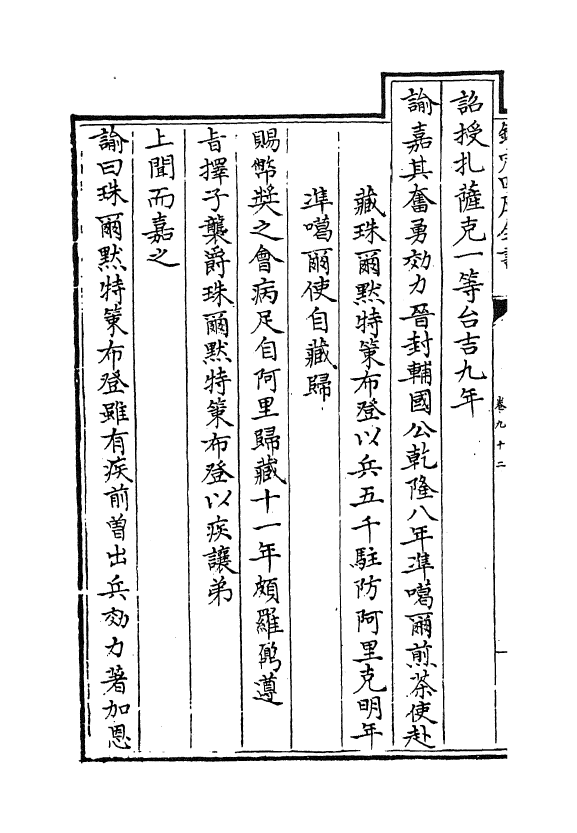 詔授扎薩克一等台吉九年
諭嘉其奮勇効力晉封輔國公乾隆八年準噶爾煎茶使赴
藏珠爾默特策布登以兵五千駐防阿里克明年
準噶爾使自藏歸
賜幣奬之會病足自阿里歸藏十一年頗羅鼐遵
旨擇子襲爵珠爾默特策布登以疾讓弟
上聞而嘉之
諭曰珠爾默特策布登雖有疾前曽出兵効力著加恩
卷九十二